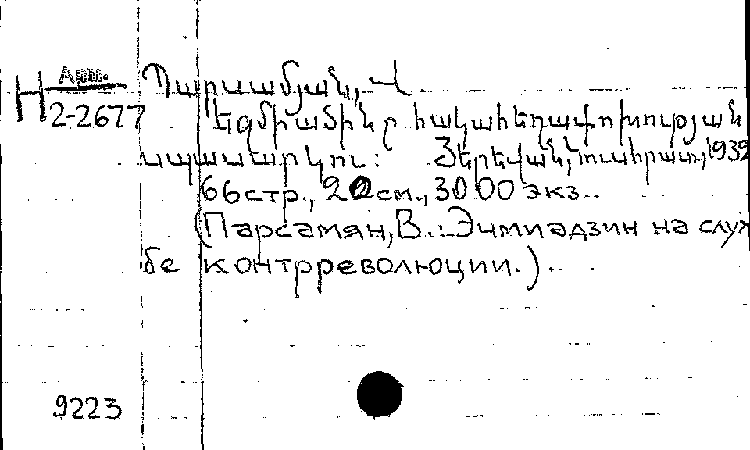 Арш.
Н 2-2677
Պարսամյան, Վ
Եզմիածինը հակահեղափոխության
սպասարկու: Յերեվան, Պուսհրատ, 1932
66 стр., 20 см., 3000 экз.
(Парсамян, В.: Эчмиадзин на служ
бе контрреволюции.).
9223